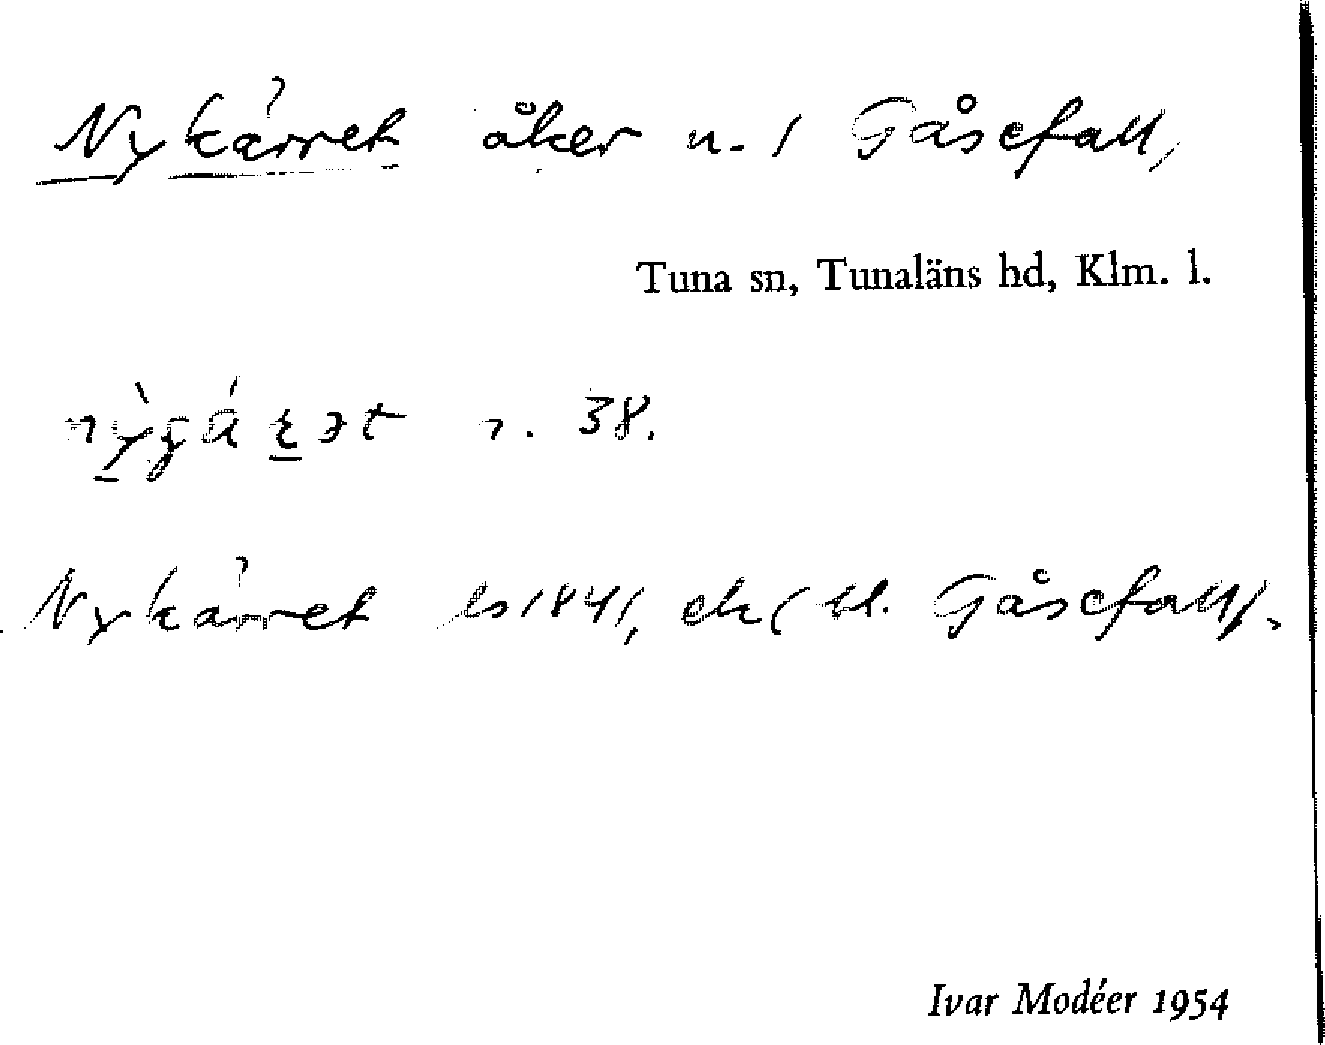 Nykärret åker u. / Gåsefall,
Tuna sn, Tunaläns hd, Klm. l.
r. 38.
Nykärret ls 1841, ek (bl. Gåsefall).
Ivar Modéer 1954